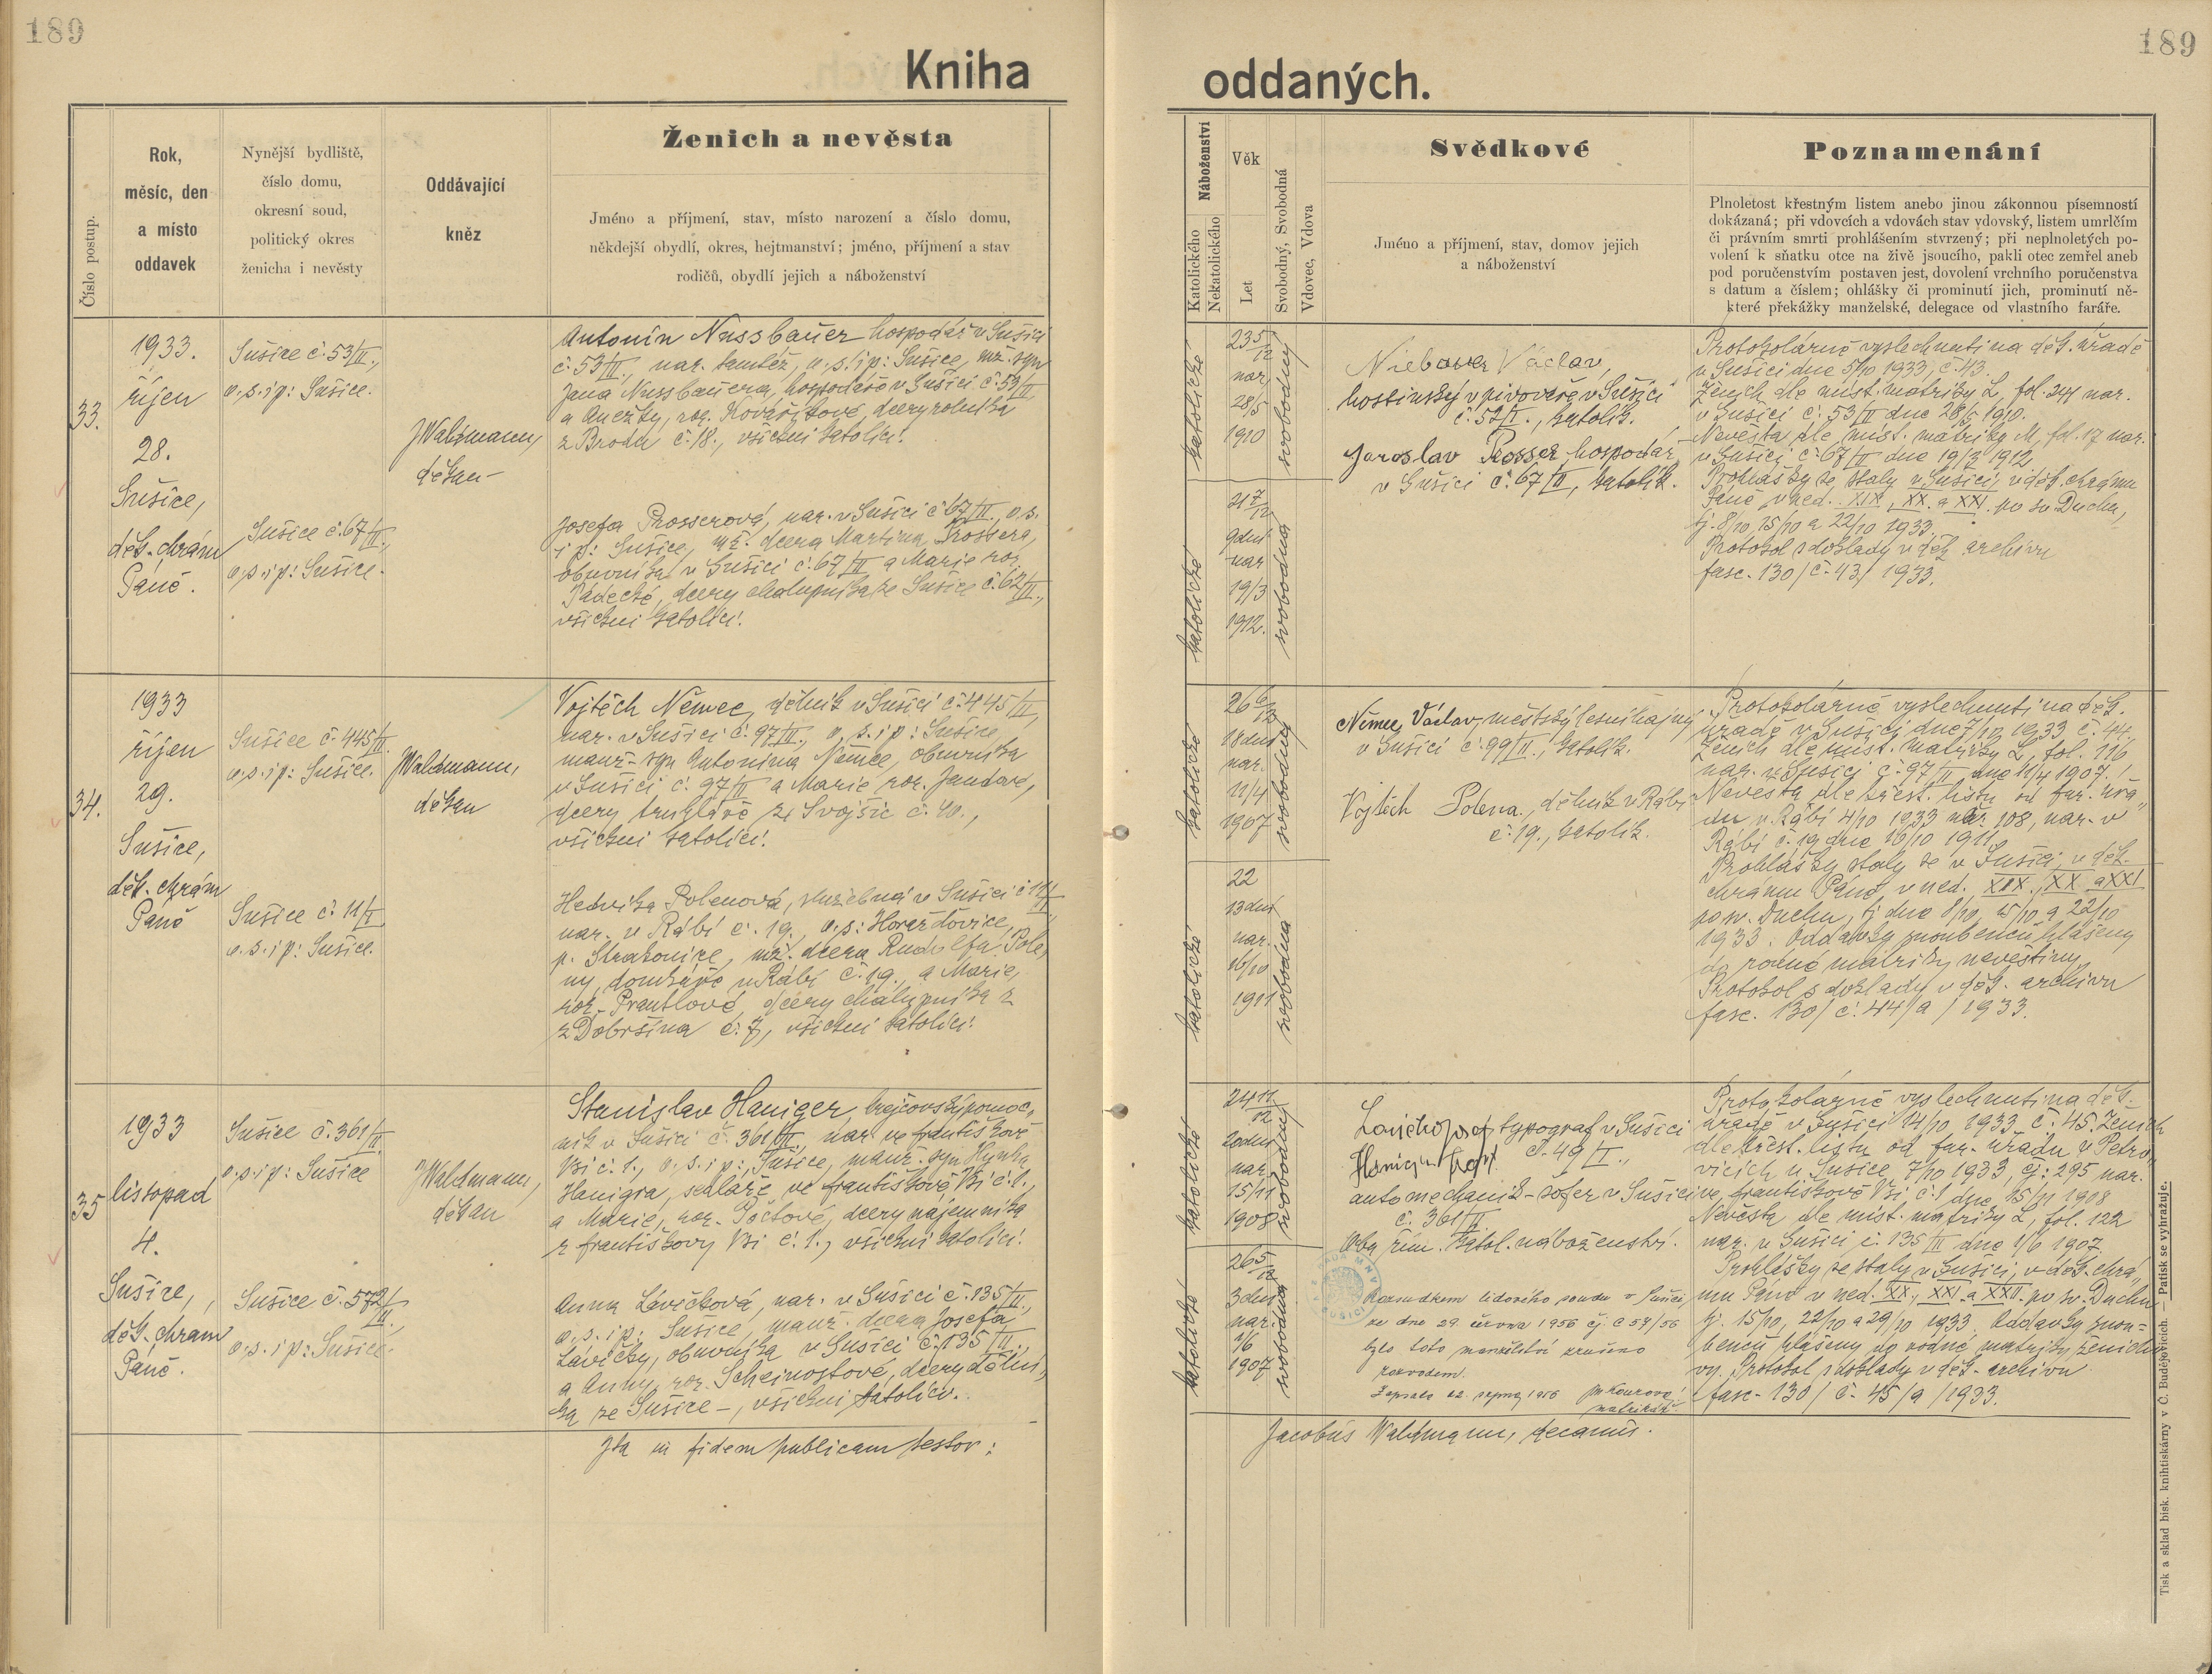 189
189
Kniha
oddaných.
Číslo postup.
Rok,
měsíc, den
a místo
oddavek
Nynější bydliště,
číslo domu,
okresní soud,
politický okres
ženicha i nevěsty
Oddávající
kněz
Ženich a nevěsta
Jméno a příjmení, stav, místo narození a číslo domu,
někdejší obydlí, okres, hejtmanství; jméno, příjmení a stav
rodičů, obydlí jejich a náboženství
Náboženství
Katolického
Nekatolického
Věk
Let
Svobodný, Svobodná
Vdovec, Vdova
Svědkové
Jméno a příjmení, stav, domov jejich
a náboženství
Poznamenání
Plnoletost křestným listem anebo jinou zákonnou písemností
dokázaná; při vdovcích a vdovách stav vdovský, listem umrlčím
či právním smrti prohlášením stvrzený; při neplnoletých po-
volení k sňatku otce na živě jsoucího, pakli otec zemřel aneb
pod poručenstvím postaven jest, dovolení vrchního poručenstva
s datum a číslem; ohlášky či prominutí jich, prominutí ně-
které překážky manželské, delegace od vlastního faráře.
33.
1933.
říjen
28.
Sušice,
děk. chrám
Páně.
Sušice č. 53/II.,
o. s. i p.: Sušice.
Sušice č. 67/II.,
o. p. i p.: Sušice.
JWaldmann,
děkan
Antonín Nussbauer hospodář v Sušici
č. 53/II., nar. tamtéž, o. s. i p.: Sušice, mž. syn
Jana Nussbauera, hospodáře v Sušici č. 53/II
a Anežky, roz. Kovaříkové, dcery rolníka
z Brodu č. 18., všichni katolíci.
Josefa Prosserová, nar. v Sušici č. 67/II., o. s.
i p.: Sušice, mž. dcera Martina Prossera,
obuvníka v Sušici č. 67/II a Marie roz.
Pádecké, dcery chalupníka ze Sušice č. 62/II.,
všichni katolíci.
katolické
23 5/12
nar.
28/5
1910
svobodný
katolické
21 7/12
9 dnů
nar
19/3
1912.
svobodná
Niebauer Václav,
hostinský v pivovaře v Sušici
č. 52/I., katolík.
Jaroslav Prosser, hospodář
v Sušici č. 67/II, katolík.
Protokolárně vyslechnuti na děk. úřadě
v Sušici dne 5/10 1933, č. 43.
Ženich dle míst. matriky L, fol. 244 nar.
v Sušici č. 53/II dne 28/5 1910.
Nevěsta dle míst. matriky M, fol. 17 nar.
v Sušici č. 67/II dne 19/3 1912
Prohlášky se staly v Sušici, v děk. chrámu
Páně v ned. XIX., XX. a XXI. po sv. Duchu,
tj. 8/10, 15/10 a 22/10 1933.
Protokol s doklady v děk. archivu
fasc. 130/č. 43/1933.
34.
1933
říjen
29.
Sušice,
děk. chrám
Páně
Sušice č. 445/II.
o. s. i p.: Sušice.
Sušice č. 11/I
o. s. i p.: Sušice.
JWaldmann,
děkan
Vojtěch Němec, dělník v Sušici č. 445/II,
nar. v Sušici č. 97/II., o. s. i p.: Sušice,
manž. syn Antonína Němce, obuvníka
v Sušici č. 97/II a Marie roz. Jandové,
dcery truhláře ze Svojšic č. 40.,
všichni katolíci.
Hedvika Polenová, služebná v Sušici č. 11/I
nar. v Rábí č. 19., o. s.: Horažďovice,
p. Strakonice, mž. dcera Rudolfa Pole,
ny, domkáře v Rábí č. 19., a Marie,
roz. Prantlové, dcery chalupníka z
z Dobršína č. 7, všichni katolíci.
katolické
26 6/12
18 dnů
nar.
11/4
1907
svobodný
katolické
22
13 dnů
nar.
16/10
1911
svobodná
Němec Václav, městský lesní hajný
v Sušici č. 99/II., katolík.
Vojtěch Polena, dělník v Rábí
č. 19., katolík.
Protokolárně vyslechnuti na děk.
úřadě v Sušici dne 7/10 1933 č. 44.
Ženich dle míst. matriky L, fol. 116
nar. v Sušici č. 97/II dne 11/4 1907.
Nevěsta dle křest. listu od far. úřa,,
du v Rábí 4/10 1933 nár. 108, nar. v
Rábí č. 19 dne 16/10 1911.
Prohlášky staly se v Sušici, v děk.
chrámu Páně v ned. XIX., XX. a XXI
po sv. Duchu, tj. dne 8/10, 15/10 a 22/10
1933. Oddavky snoubenců hlášeny
do rodné matriky nevěstiny.
Protokol s doklady v děk. archivu
fasc. 130/č. 44/a/1933.
35
1933
listopad
4.
Sušice,
děk. chrám
Páně.
Sušice č. 361/II.
o. s. i p.: Sušice
Sušice č. 572/II.,
o. s. i p.: Sušice.
JWaldmann,
děkan
Stanislav Haniger, krejčovský pomoc,
ník v Sušici č. 361/II., nar. ve Františkově
Vsi č. 1., o. s. i p.: Sušice, manž. syn Hynka
Hanigra, sedláře ve Františkově Vsi č. 1.,
a Marie, roz. Počtové, dcery nájemníka
z Františkovy Vsi č. 1., všichni katolíci.
Anna Lávičková, nar. v Sušici č. 135/II.,
o. s. i p.: Sušice, manž. dcera Josefa
Lávičky, obuvníka v Sušici č. 135/II
a Anny, roz. Scheinostové, dcery dělní,
ka ze Sušice –, všichni katolíci.
katolické
24 11/12
20 dnů
nar.
15/11
1908
svobodný
katolické
26 5/12
3 dnů
nar.
1/6
1907
svobodná
typograf v Sušici
č. 49/I.,
automechanik – šofer v Sušici
č. 361/II.
Oba řím. katol. náboženství.
Rozsudkem lidového soudu v Sušici
ze dne 29. června 1956 čj. C 57/56
bylo toto manželství zrušeno
rozvodem.
Zapsáno 22. srpna 1956
matrikář.
Protokolárně vyslechnuti na děk.
úřadě v Sušici 14/10 1933 č. 45. Ženich
dle křest. listu od far. úřadu v Petro,
vicích u Sušice, 7/10 1933, čj.: 295 nar.
ve Františkově Vsi č. 1 dne 15/11 1908
Nevěsta dle míst. matriky L, fol. 122
nar. v Sušici č. 135/II dne 1/6 1907.
Prohlášky se staly v Sušici, v děk. chrá,,
mu Páně v ned. XX., XXI. a XXII. po sv. Duchu
tj. 15/10, 22/10 a 29/10 1933. Oddavky snou-
benců hlášeny do rodné matriky ženicho
vy. Protokol s doklady v děk. archivu
fasc. 130/č. 45/a/1933.
Ita in fidem publicam testor:
Jacobus Waldmann, decanus.
Tisk a sklad bisk. knihtiskárny v Č. Budějovicích. – Patisk se vyhražuje.